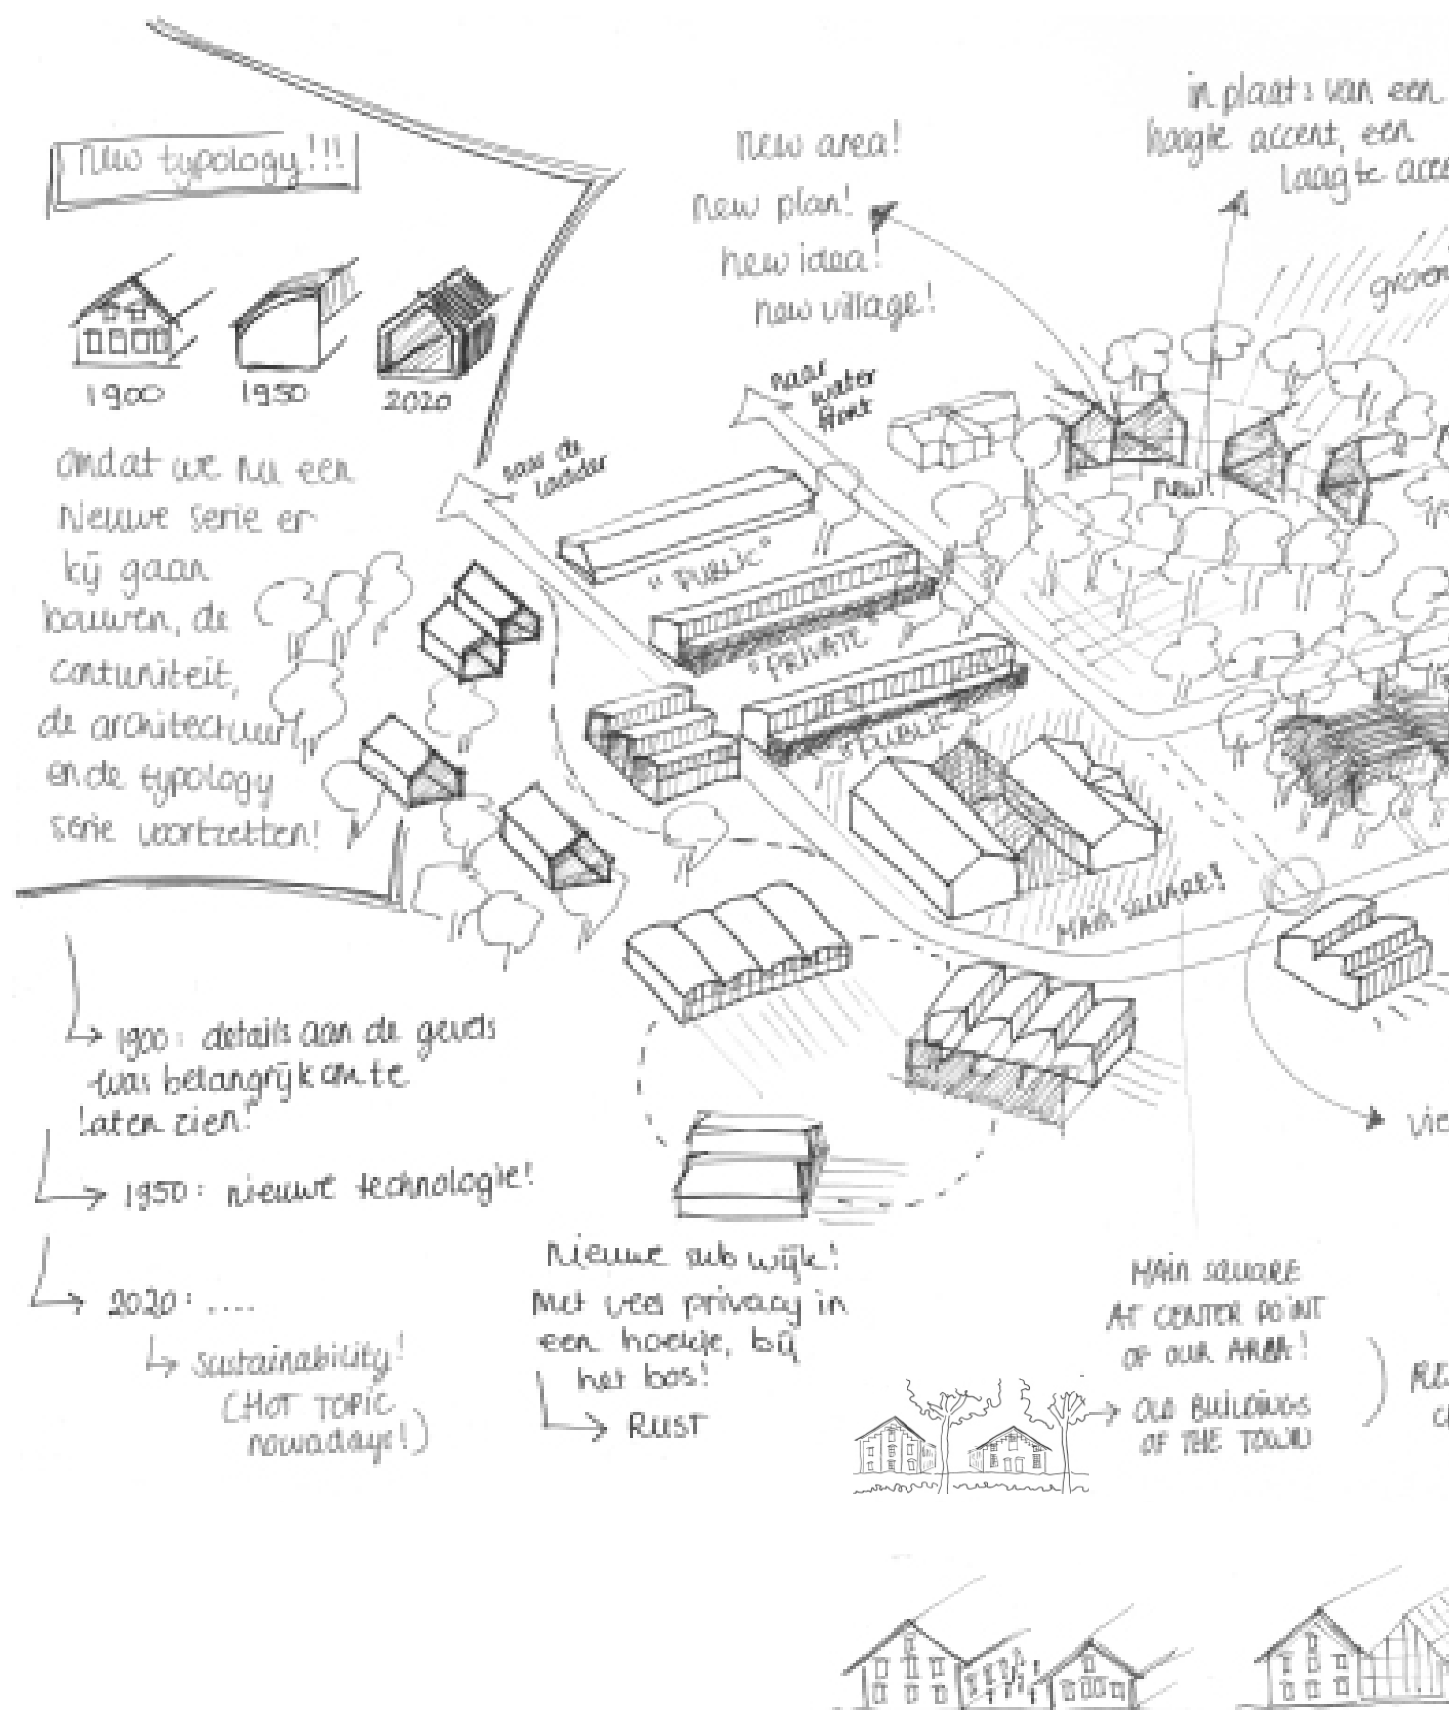 new typology!!!
1900
1950
2020
omdat we nu een
nieuwe serie er
bij gaan
bouwen, de
contuniteit,
de architectuur,
en de typology
serie voortzetten!
1900: details aan de gevels
was belangrijk om te
laten zien!
1950: nieuwe technologie!
2020: ....
sustainability!
(HOT TOPIC
nowadays!)
new area!
new plan!
new idea!
new village!
in plaats van een
hoogte accent, een
laagte
groen
naar
water
front
naar de
ladder
new!
"PUBLIC"
"PRIVATE"
"PUBLIC"
MAIN SQUARE!
nieuwe sub wijk!
Met veel privacy in
een hoekje, bij
het bos!
RUST
MAIN SQUARE
AT CENTER POINT
OF OUR AREA!
OLD BUILDINGS
OF THE TOWN